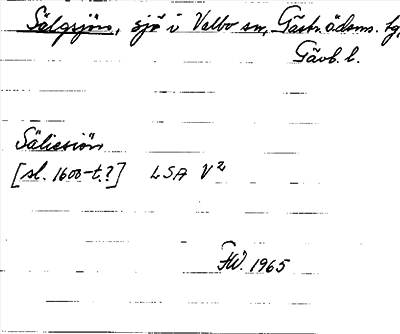 Sälgsjön, sjö i Valbo sn, Gästr. ödsms. tg,
Gävb. l.
Säliesiön
[sl. 1600-t.?] LSA V²
FW. 1965